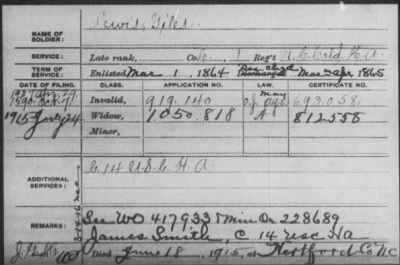 Lewis, Giles
NAME OF SOLDIER:
SERVICE: Late rank, Co. 1 Reg't N.C. Cold H.A.
TERM OF SERVICE: Enlisted Mar 1, 1864 Discharged Mar 1865
DATE OF FILING. CLASS. APPLICATION NO. LAW. CERTIFICATE NO.
Invalid, 919.140 693.058
1915 July 24 Widow, 1050.818 A 812558
Minor,
ADDITIONAL SERVICES: C. 14 U.S.C.H.A.
REMARKS: See WO 417933 & Min Or 228689
James Smith, C 14 USC Ha
Died June 18, 1915, at Hertford Co NC